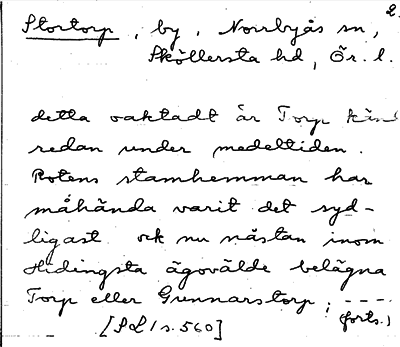 2.
Stortorp, by, Norrbyås sn,
Sköllersta hd, Ör. l.
detta oaktadt är Torp känd
redan under medeltiden.
Rotens stamhemman har
måhända varit det syd-
ligast ock nu nästan inom
Hidingsta ägovälde belägna
Torp eller Gunnarstorp; ----
(forts.)
[SL 1 s. 560]